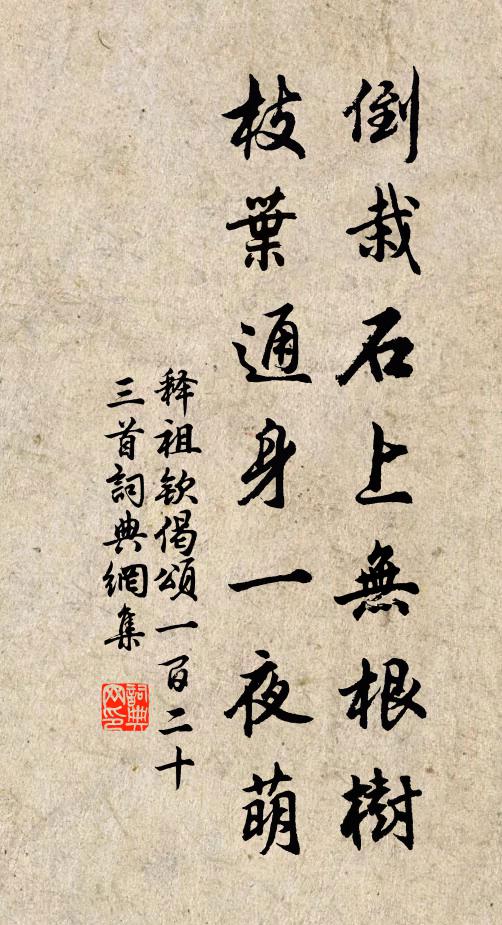 倒栽石上無根樹
枝葉通身一夜萌
释祖钦偈頌一百二十
三首詞典網集
詞典
网印